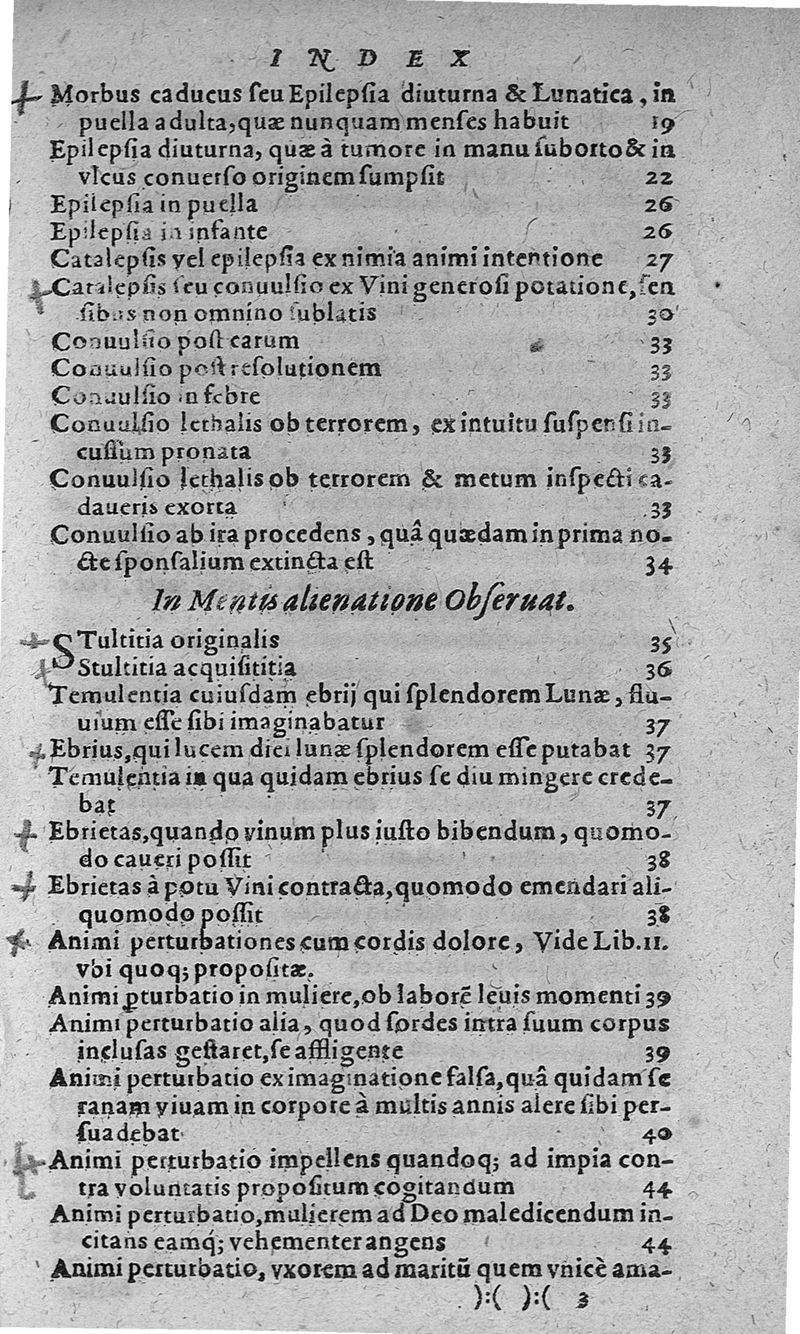 INDEX
Morbus caducus ſeu Epilepſia diuturna & Lunatica, in
puella adulta, quæ nunquam menſes habuit 19
Epilepſia diuturna, quæ à tumore in manu ſuborto & in
vlcus conuerſo originem ſumpſit 22
Epilepſia in puella 26
Epilepſia in infante 26
Catalepſis vel epilepſia ex nimia animi intentione 27
Catalepſis ſeu conuulſio ex Vini generoſi potatione, ſen
ſibus non omnino ſublatis 30
Conuulſio poſt carum 33
Conuulſio poſt reſolutionem 33
Conuulſio in febre 33
Conuulſio lethalis ob terrorem, ex intuitu ſuſpenſi in-
cuſſum pronata 33
Conuulſio lethalis ob terrorem & metum inſpecti ca-
daueris exorta 33
Conuulſio ab ira procedens, quâ quædam in prima no-
cte ſponſalium extincta eſt 34
In Mentis alienatione Obſeruat.
STultitia originalis 35
Stultitia acquiſititia 36
Temulentia cuiuſdam ebrij qui ſplendorem Lunæ, flu-
uium eſſe ſibi imaginabatur 37
Ebrius, qui lucem diei lunæ ſplendorem eſſe putabat 37
Temulentia in qua quidam ebrius ſe diu mingere crede-
bat 37
Ebrietas, quando vinum plus iuſto bibendum, quomo-
do caueri poſſit 38
Ebrietas à potu Vini contracta, quomodo emendari ali-
quomodo poſſit 38
Animi perturbationes cum cordis dolore, Vide Lib. 11.
vbi quoq; propoſitæ.
Animi ꝑturbatio in muliere, ob laborẽ leuis momenti 39
Animi perturbatio alia, quod ſordes intra ſuum corpus
incluſas geſtaret, ſe affligente 39
Animi perturbatio ex imaginatione falſa, quâ quidam ſe
ranam viuam in corpore à multis annis alere ſibi per-
ſuadebat 40
Animi perturbatio impellens quandoq; ad impia con-
tra voluntatis propoſitum cogitandum 44
Animi perturbatio, mulierem ad Deo maledicendum in-
citans eamq́; vehementer angens 44
Animi perturbatio, vxorem ad maritũ quem vnicè ama-
):( ):( 3